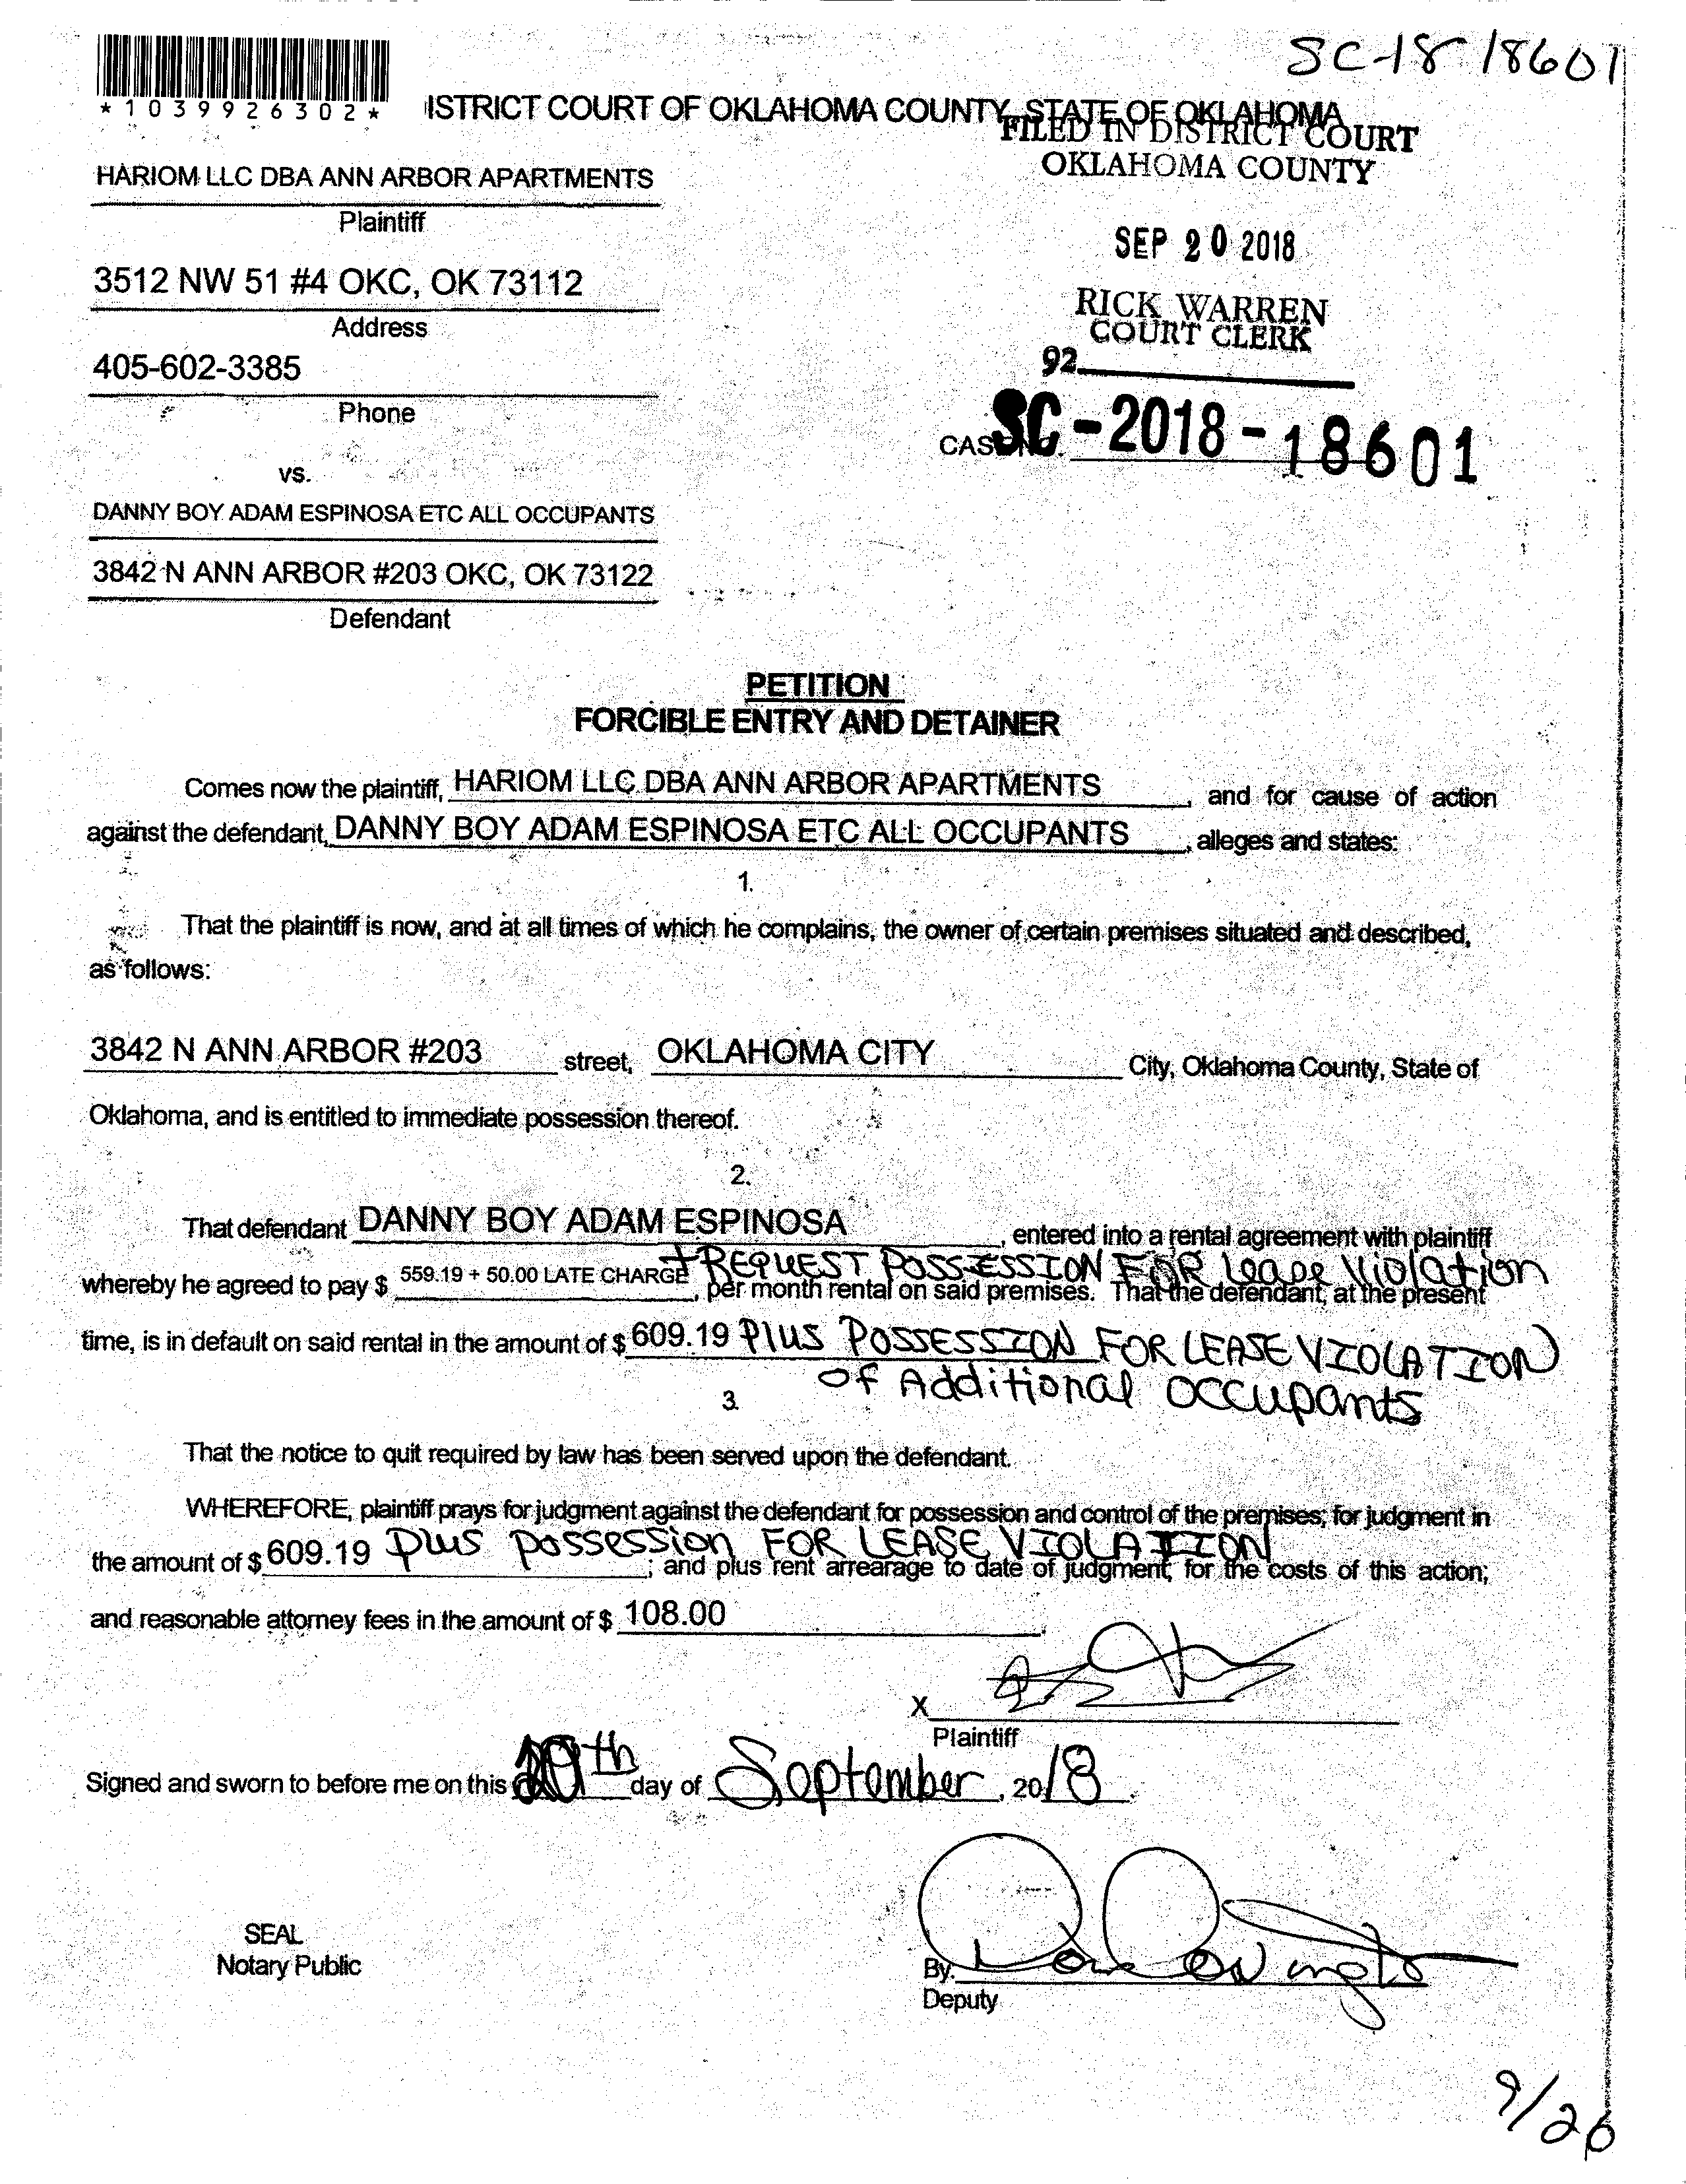 SC-18 18601
*1039926302*
ISTRICT COURT OF OKLAHOMA COUNTY, STATE OF OKLAHOMA
FILED IN DISTRICT COURT
OKLAHOMA COUNTY
HARIOM LLC DBA ANN ARBOR APARTMENTS
Plaintiff
SEP 20 2018
3512 NW 51 #4 OKC, OK 73112
Address
RICK WARREN
COURT CLERK
92
405-602-3385
Phone
CAS SC-2018-18601
vs.
DANNY BOY ADAM ESPINOSA ETC ALL OCCUPANTS
3842 N ANN ARBOR #203 OKC, OK 73122
Defendant
PETITION
FORCIBLE ENTRY AND DETAINER
Comes now the plaintiff, HARIOM LLC DBA ANN ARBOR APARTMENTS, and for cause of action
against the defendant, DANNY BOY ADAM ESPINOSA ETC ALL OCCUPANTS, alleges and states:
1.
That the plaintiff is now, and at all times of which he complains, the owner of certain premises situated and described,
as follows:
3842 N ANN ARBOR #203 street, OKLAHOMA CITY City, Oklahoma County, State of
Oklahoma, and is entitled to immediate possession thereof.
2.
That defendant DANNY BOY ADAM ESPINOSA, entered into a rental agreement with plaintiff
+ REQUEST POSSESSION FOR Lease Violation
whereby he agreed to pay $ 559.19 + 50.00 LATE CHARGE, per month rental on said premises. That the defendant, at the present
time, is in default on said rental in the amount of $ 609.19 Plus POSSESSION FOR LEASE VIOLATION
of Additional Occupants
3.
That the notice to quit required by law has been served upon the defendant.
WHEREFORE, plaintiff prays for judgment against the defendant for possession and control of the premises; for judgment in
the amount of $ 609.19 Plus Possession FOR LEASE VIOLATION; and plus rent arrearage to date of judgment, for the costs of this action;
and reasonable attorney fees in the amount of $ 108.00
X
Plaintiff
Signed and sworn to before me on this 20th day of September, 2018.
SEAL
Notary Public
By:
Deputy
9/26